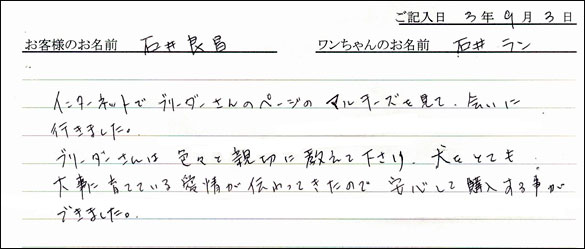 ご記入日 3年9月3日
お客様のお名前 石井良昌 ワンちゃんのお名前 石井ラン
インターネットでブリーダーさんのページのマルチーズを見て、会いに
行きました。
ブリーダーさんは色々と親切に教えて下さり、犬もとても
大事に育てている愛情が伝わってきたので安心して購入する事が
できました。